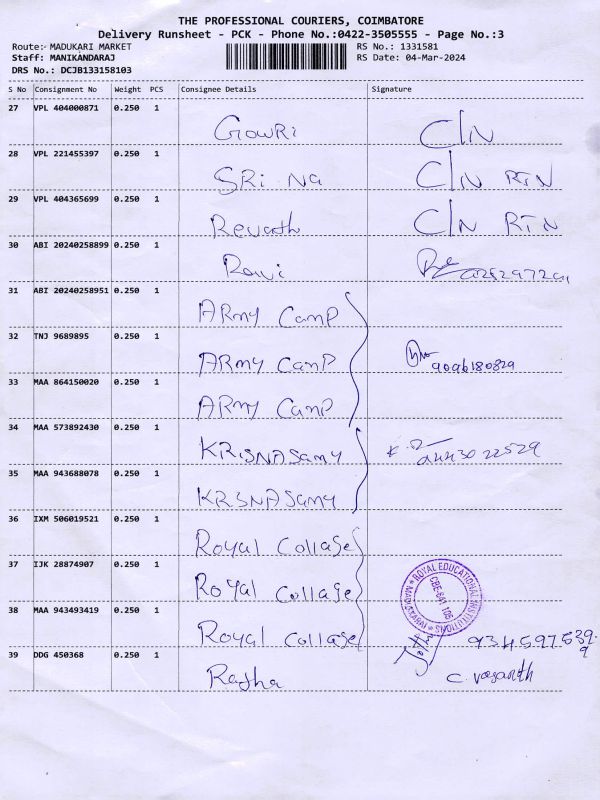 THE PROFESSIONAL COURIERS, COIMBATORE
Delivery Runsheet - PCK - Phone No.:0422-3505555 - Page No.:3
Route: MADUKARI MARKET RS No.: 1331581
Staff: MANIKANDARAJ RS Date: 04-Mar-2024
DRS No.: DCJB133158103
S No Consignment No Weight PCS Consignee Details Signature
27 VPL 404000871 0.250 1 GowRi C/N
28 VPL 221455397 0.250 1 SRi Na C/N RTN
29 VPL 404365699 0.250 1 Revath C/N RTN
30 ABI 20240258899 0.250 1 Ravi
31 ABI 20240258951 0.250 1 ARmy Camp
32 TNJ 9689895 0.250 1 ARmy Camp 9096180829
33 MAA 864150020 0.250 1 ARmy Camp
34 MAA 573892430 0.250 1 KRiSNASamy
35 MAA 943688078 0.250 1 KRSNASamy
36 IXM 506019521 0.250 1 Royal Collage
37 IJK 28874907 0.250 1 Royal Collage
ROYAL EDUCATIONAL INSTITUTIONS
CBE-641 105
38 MAA 943493419 0.250 1 Royal Collage 934597539
9
39 DDG 450368 0.250 1 Radha C. Vasanth